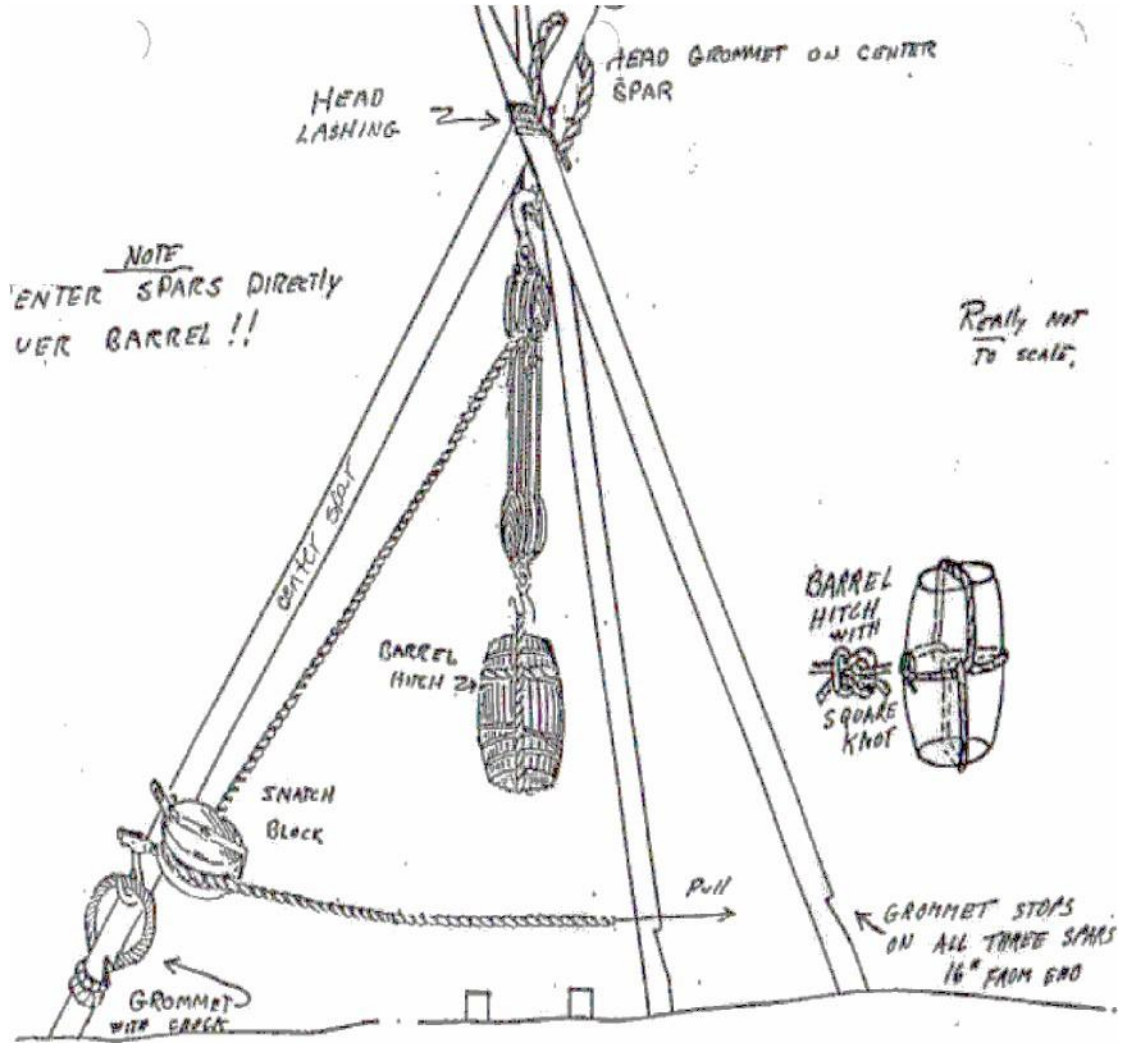 HEAD GROMMET ON CENTER
SPAR
HEAD
LASHING
NOTE
ENTER SPARS DIRECTLY
VER BARREL !!
Really NOT
TO SCALE.
center spar
BARREL
HITCH
BARREL
HITCH
WITH
SQUARE
KNOT
SNATCH
BLOCK
Pull
GROMMET STOPS
ON ALL THREE SPARS
16" FROM END
GROMMET
WITH